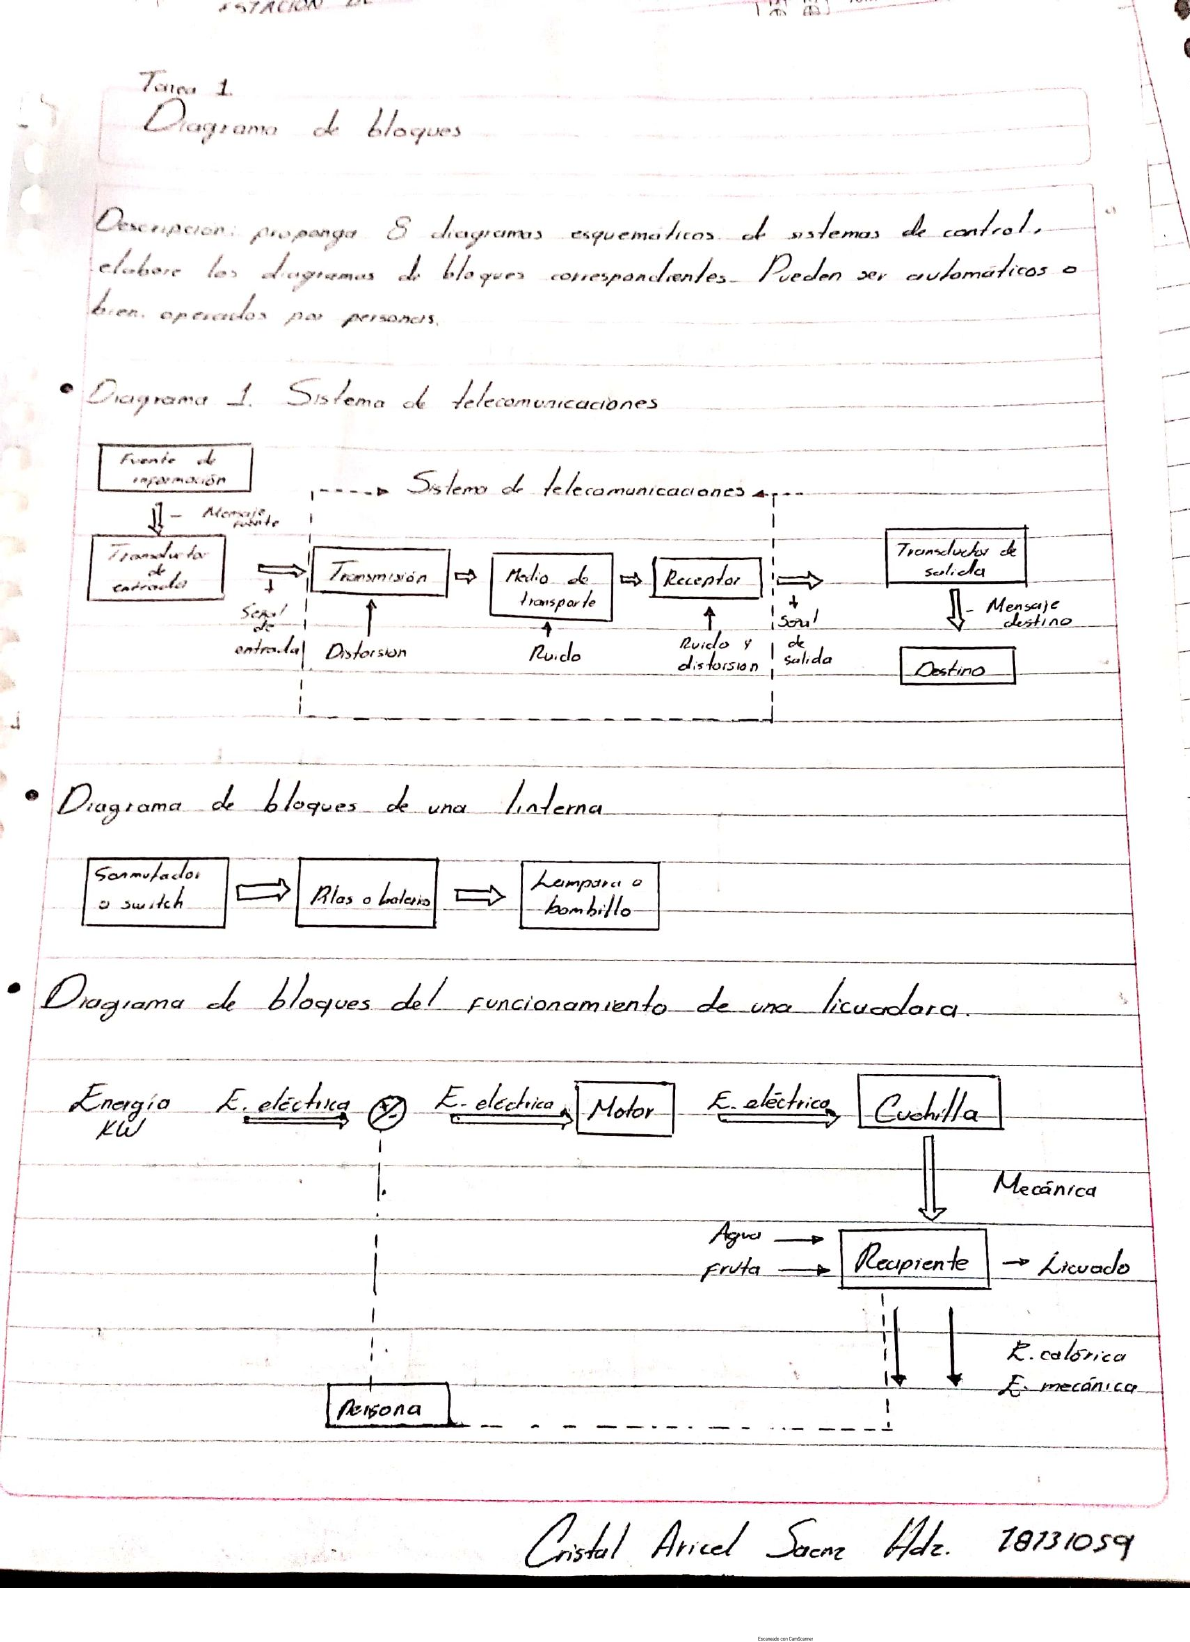 ESTACION DE
Tarea 1.
Diagrama de bloques
Descripcion: proponga 8 diagramas esquematicos d sistemas de control,
elabore los diagramas de bloques correspondientes. Pueden ser automáticos o
bien, operados por personas.
• Diagrama 1. Sistema de telecomunicaciones
Fuente de
información
- Mensaje
fuente
Sistema de telecomunicaciones
Transductor
de
entrada
Señal
de
entrada
Transmisión
Distorsion
Medio de
transporte
Ruido
Receptor
Ruido y
distorsion
Señal
de
salida
Transductor de
salida
- Mensaje
destino
Destino
• Diagrama de bloques de una linterna
Sonmutador
o switch
Pilas o bateria
Lampara o
bombillo
• Diagrama de bloques del funcionamiento de una licuadora.
Energía
KW
E. eléctrica
E. eléctrica
Motor
E. eléctrica
Cuchilla
Mecánica
Agua
Fruta
Recipiente
Licuado
E. calórica
E. mecánica
Persona
Cristal Aricel Saenz Hdz. 18131059
Escaneado con CamScanner